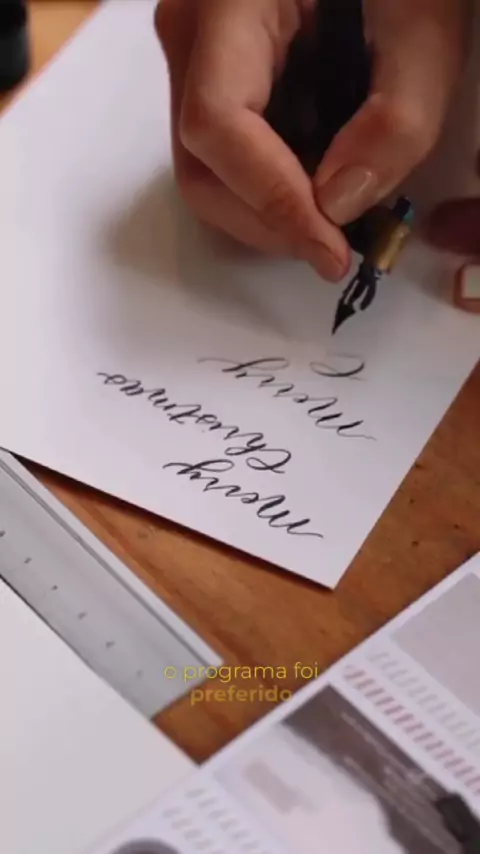 Merry
Christmas
Merry
C
o programa foi
preferido